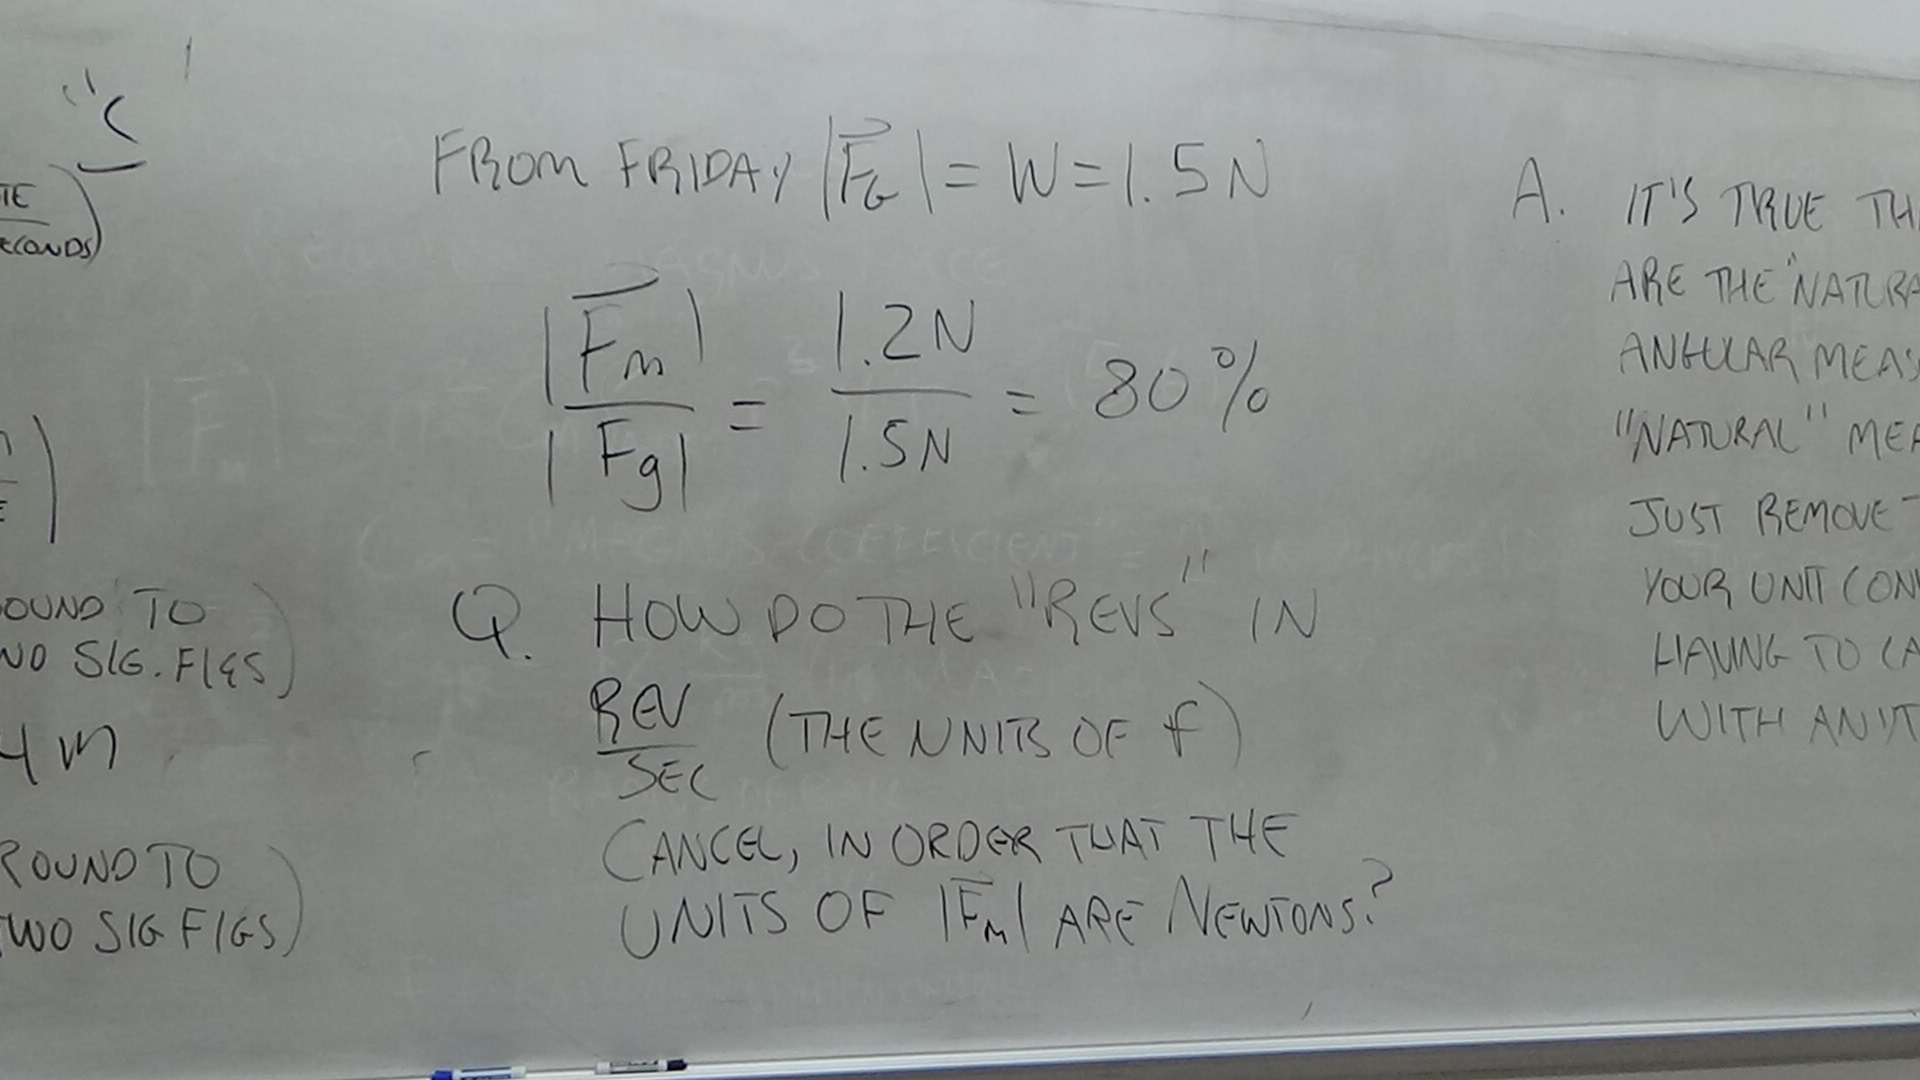 "C
TE
ECONDS)
OUND TO
NO SIG. FIGS)
4 m
ROUND TO
TWO SIG FIGS)
FROM FRIDAY |F⃗G| = W = 1.5 N
|F⃗m| / |Fg| = 1.2N / 1.5N = 80%
Q. HOW DO THE "REVS" IN
REV / SEC (THE UNITS OF f)
CANCEL, IN ORDER THAT THE
UNITS OF |F⃗M| ARE NEWTONS?
A. IT'S TRUE TH
ARE THE "NATURA
ANGULAR MEAS
"NATURAL" MEA
JUST REMOVE
YOUR UNIT CON
HAVING TO CA
WITH ANYT